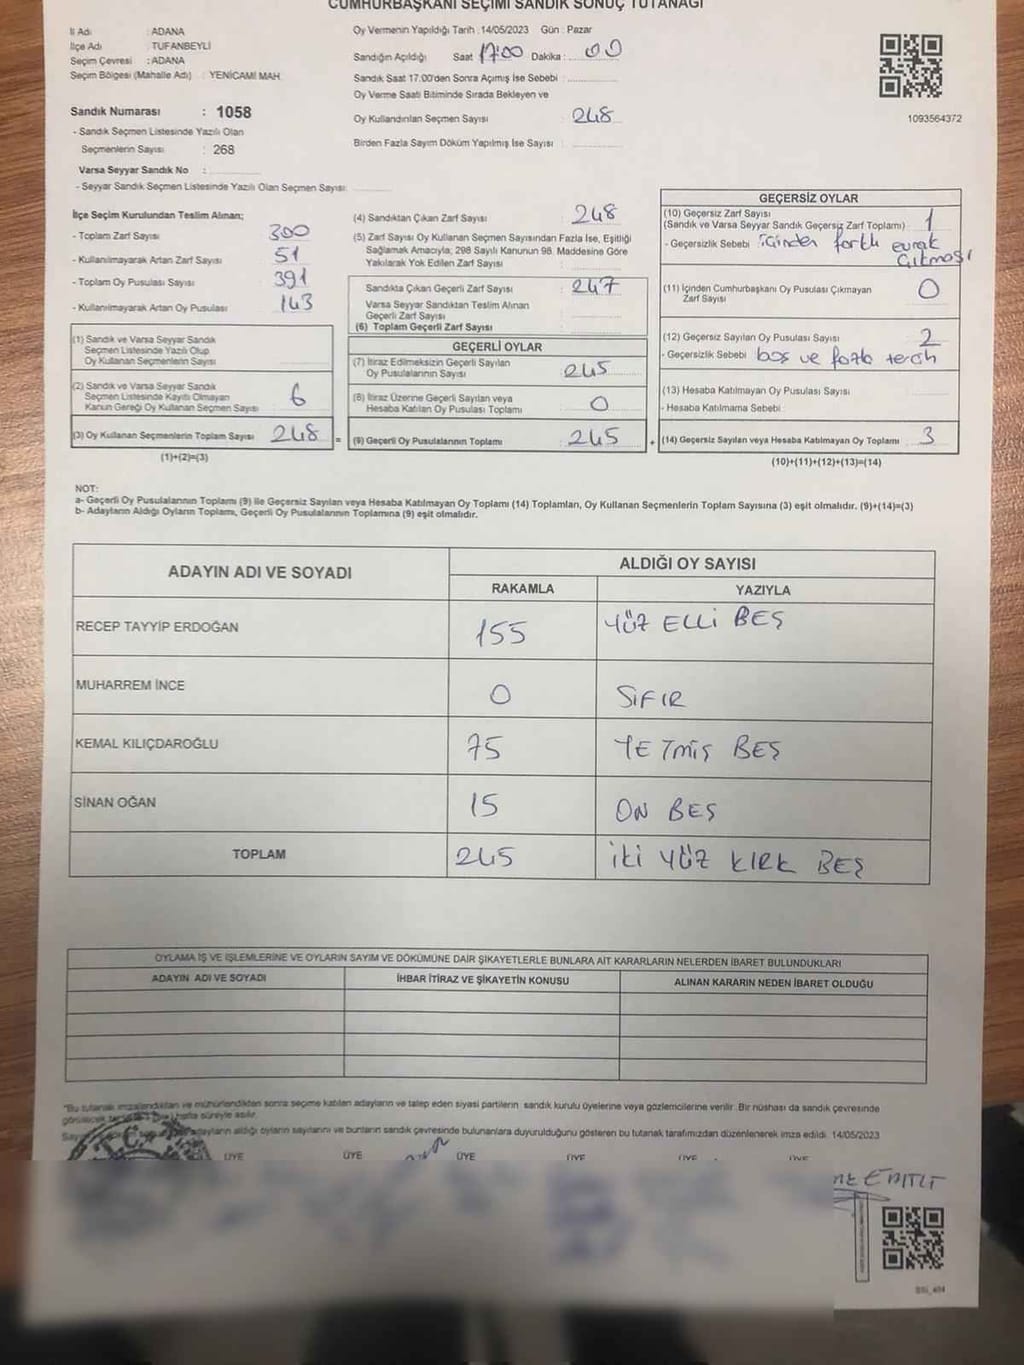 CUMHURBAŞKANI SEÇİMİ SANDIK SONUÇ TUTANAĞI
İl Adı : ADANA
İlçe Adı : TUFANBEYLİ
Seçim Çevresi : ADANA
Seçim Bölgesi (Mahalle Adı) : YENİCAMİ MAH.
Sandık Numarası : 1058
- Sandık Seçmen Listesinde Yazılı Olan
Seçmenlerin Sayısı : 268
Varsa Seyyar Sandık No :
- Seyyar Sandık Seçmen Listesinde Yazılı Olan Seçmen Sayısı:
Oy Vermenin Yapıldığı Tarih : 14/05/2023 Gün : Pazar
Sandığın Açıldığı Saat 17:00 Dakika : 00
Sandık Saat 17.00'den Sonra Açılmış İse Sebebi :
Oy Verme Saati Bitiminde Sırada Bekleyen ve
Oy Kullandırılan Seçmen Sayısı : 248
Birden Fazla Sayım Döküm Yapılmış İse Sayısı :
1093564372
İlçe Seçim Kurulundan Teslim Alınan;
- Toplam Zarf Sayısı : 300
- Kullanılmayarak Artan Zarf Sayısı : 51
- Toplam Oy Pusulası Sayısı : 391
- Kullanılmayarak Artan Oy Pusulası : 143
(1) Sandık ve Varsa Seyyar Sandık
Seçmen Listesinde Yazılı Olup
Oy Kullanan Seçmenlerin Sayısı :
(2) Sandık ve Varsa Seyyar Sandık
Seçmen Listesinde Kayıtlı Olmayan
Kanun Gereği Oy Kullanan Seçmen Sayısı : 6
(3) Oy Kullanan Seçmenlerin Toplam Sayısı : 248
(1)+(2)=(3)
(4) Sandıktan Çıkan Zarf Sayısı : 248
(5) Zarf Sayısı Oy Kullanan Seçmen Sayısından Fazla İse, Eşitliği
Sağlamak Amacıyla; 298 Sayılı Kanunun 98. Maddesine Göre
Yakılarak Yok Edilen Zarf Sayısı :
Sandıkta Çıkan Geçerli Zarf Sayısı : 247
Varsa Seyyar Sandıktan Teslim Alınan
Geçerli Zarf Sayısı :
(6) Toplam Geçerli Zarf Sayısı :
GEÇERLİ OYLAR
(7) İtiraz Edilmeksizin Geçerli Sayılan
Oy Pusulalarının Sayısı : 245
(8) İtiraz Üzerine Geçerli Sayılan veya
Hesaba Katılan Oy Pusulası Toplamı : 0
= (9) Geçerli Oy Pusulalarının Toplamı : 245
GEÇERSİZ OYLAR
(10) Geçersiz Zarf Sayısı
(Sandık ve Varsa Seyyar Sandık Geçersiz Zarf Toplamı) : 1
- Geçersizlik Sebebi : içinden farklı evrak
çıkması
(11) İçinden Cumhurbaşkanı Oy Pusulası Çıkmayan
Zarf Sayısı : 0
(12) Geçersiz Sayılan Oy Pusulası Sayısı : 2
- Geçersizlik Sebebi : boş ve fazla tercih
(13) Hesaba Katılmayan Oy Pusulası Sayısı :
- Hesaba Katılmama Sebebi :
+ (14) Geçersiz Sayılan veya Hesaba Katılmayan Oy Toplamı : 3
(10)+(11)+(12)+(13)=(14)
NOT:
a- Geçerli Oy Pusulalarının Toplamı (9) ile Geçersiz Sayılan veya Hesaba Katılmayan Oy Toplamı (14) Toplamları, Oy Kullanan Seçmenlerin Toplam Sayısına (3) eşit olmalıdır. (9)+(14)=(3)
b- Adayların Aldığı Oyların Toplamı, Geçerli Oy Pusulalarının Toplamına (9) eşit olmalıdır.
ADAYIN ADI VE SOYADI ALDIĞI OY SAYISI
RAKAMLA YAZIYLA
RECEP TAYYİP ERDOĞAN 155 YÜZ ELLİ BEŞ
MUHARREM İNCE 0 SIFIR
KEMAL KILIÇDAROĞLU 75 YETMİŞ BEŞ
SİNAN OĞAN 15 ON BEŞ
TOPLAM 245 İKİ YÜZ KIRK BEŞ
OYLAMA İŞ VE İŞLEMLERİNE VE OYLARIN SAYIM VE DÖKÜMÜNE DAİR ŞİKAYETLERLE BUNLARA AİT KARARLARIN NELERDEN İBARET BULUNDUKLARI
ADAYIN ADI VE SOYADI İHBAR İTİRAZ VE ŞİKAYETİN KONUSU ALINAN KARARIN NEDEN İBARET OLDUĞU
"Bu tutanak imzalandıktan ve mühürlendikten sonra seçime katılan adayların ve talep eden siyasi partilerin sandık kurulu üyelerine veya gözlemcilerine verilir. Bir nüshası da sandık çevresinde
görülecek hafta süreyle asılır.
adayların aldığı oyların sayılarını ve bunların sandık çevresinde bulunanlara duyurulduğunu gösteren bu tutanak tarafımızdan düzenlenerek imza edildi. 14/05/2023
ÜYE ÜYE ÜYE ÜYE ÜYE ÜYE